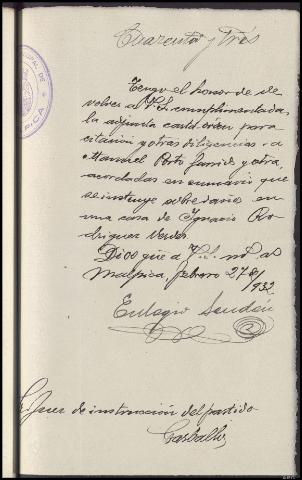 Cuarenta y Tres
Tengo el honor de de
volver a V.S. cumplimentada
la adjunta carta orden para
citación y otras diligencias a
Manuel Porto Garrido y otra,
acordadas en sumario que
se instruye sobre daños en
una casa de Ignacio Ro-
driguez Verdes.
Dios gue a V.S. ms as
Malpica, febrero 27 de
1932.
Eulogio
Sr. Juez de instrucción del partido
Carballo